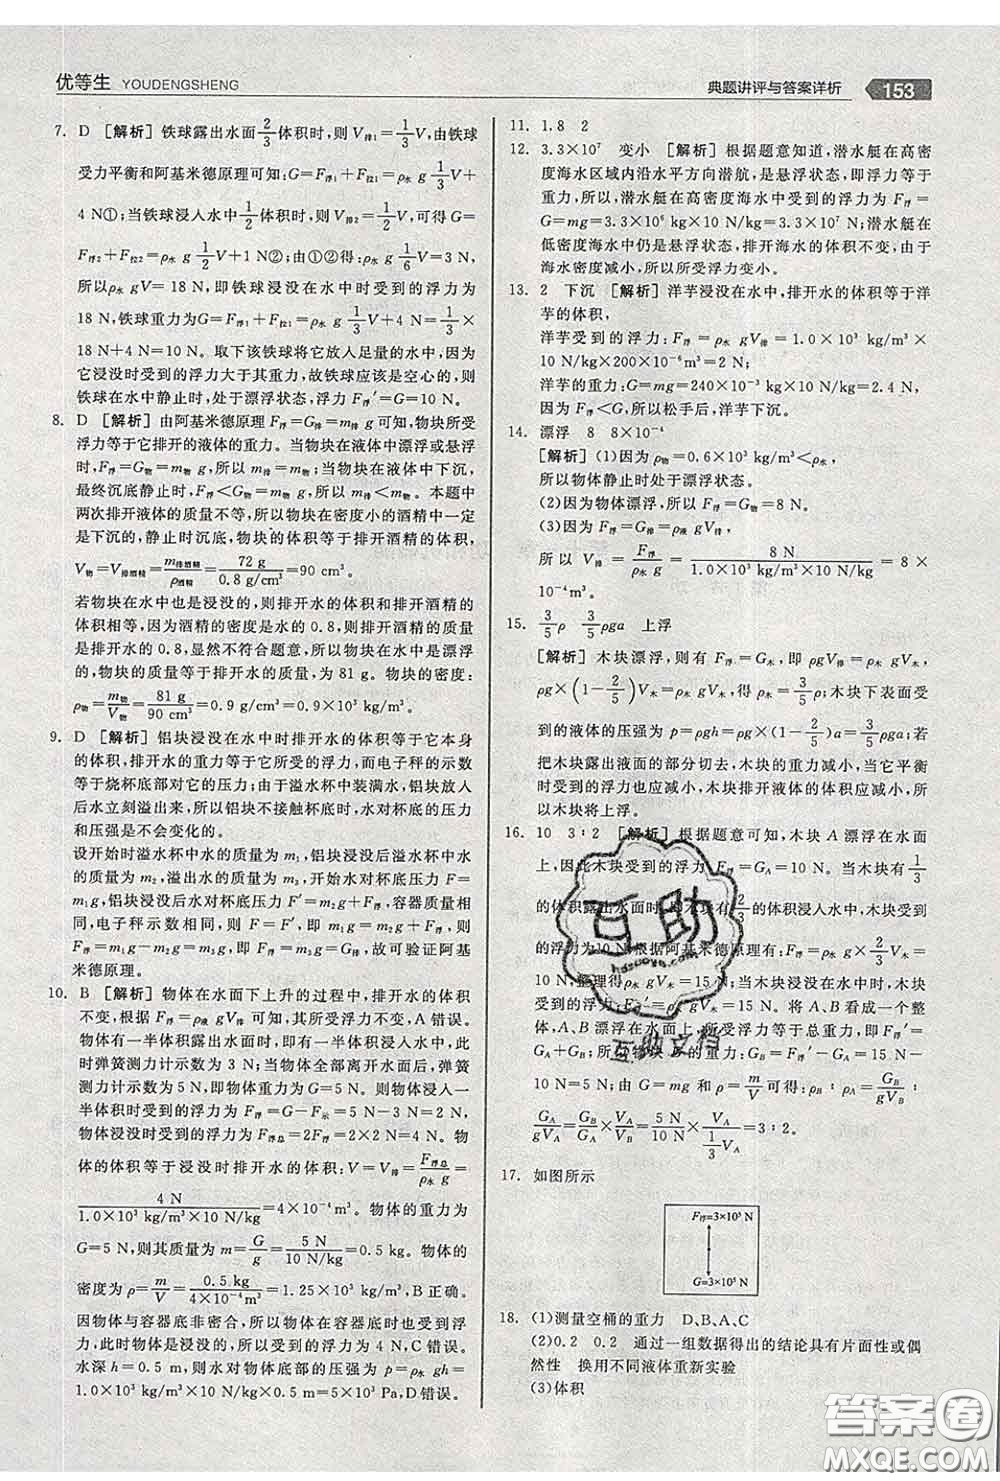 优等生 YOUDENGSHENG
典题讲评与答案详析 153
7. D [解析]铁球露出水面2/3体积时,则V排1=1/3V,由铁球
受力平衡和阿基米德原理可知:G=F浮1+F拉1=ρ水 g 1/3V
+4 N①;当铁球浸入水中1/2体积时,则V排2=1/2V,可得G=
F浮2+F拉2=ρ水 g 1/2V+1 N②;由①②得:ρ水 g 1/6V=3 N,
所以ρ水 gV=18 N,即铁球浸没在水中时受到的浮力为
18 N,铁球重力为G=F浮1+F拉1=ρ水 g 1/3V+4 N=1/3×
18 N+4 N=10 N。取下该铁球将它放入足量的水中,因
它浸没时受到的浮力大于其重力,故铁球应该是空心的,则
铁球在水中静止时,处于漂浮状态,浮力F浮′=G=10 N。
8. D [解析]由阿基米德原理F浮=G排=m排 g可知,物块所受
浮力等于它排开的液体的重力。当物块在液体中漂浮或悬浮
时,F浮=G物=m物 g,所以m排=m物;当物块在液体中下沉,
最终沉底静止时,F浮<G物=m物 g,所以m排<m物。本题中
两次排开液体的质量不等,所以物块在密度小的酒精中一定
是下沉的,静止时沉底,物块的体积等于排开酒精的体积,
V物=V排酒精=m排酒精/ρ酒精=72 g/0.8 g/cm³=90 cm³。
若物块在水中也是浸没的,则排开水的体积和排开酒精的
体积相等,因酒精的密度是水的0.8,则排开酒精的质量也
是水的0.8,显然不符合题意,所以物块在水中是漂浮的。
物块的质量等于排开水的质量,为81 g。物块的密度:
ρ物=m物/V物=81 g/90 cm³=0.9 g/cm³=0.9×10³ kg/m³。
9. D [解析]铝块浸没在水中时排开水的体积等于它本身
的体积,排开水的重力等于它所受的浮力,而电子秤的示数
等于烧杯底部对它的压力;由于溢水杯中装满水,铝块浸入
后水立刻溢出来,所以铝块不接触杯底时,水对杯底的压力
和压强是不会变化的。
设开始时溢水杯中水的质量为m₁,铝块浸没后溢水杯中水的
质量为m₂,溢出水的质量为m₃,开始时水对杯底压力F=
m₁g,铝块浸没后水对杯底压力F′=m₂g+F浮,容器质量相
同,电子秤示数相同,则有F=F′,即m₁g=m₂g+F浮,所以
F浮=m₁g-m₂g=m₃g,即F浮=m₃g=G排,故可验证阿基
米德原理。
10. B [解析]物体在水面下上升的过程中,排开水的体积
不变,根据F浮=ρ液 gV排可知,其所受浮力不变,A错误。
物体有一半体积露出水面时,即有一半体积浸在水中,此
时弹簧测力计示数为3 N;当物体全部离开水面后,弹簧
测力计示数为5 N,即物体重力为G=5 N。则物体浸入一
半体积时受到的浮力F浮=G-F示=5 N-3 N=2 N,浸
没时受到的浮力F浮总=2F浮=2×2 N=4 N。
物体的体积等于浸没时排开水的体积:V=V排=F浮总/ρ水 g=
4 N/1.0×10³ kg/m³×10 N/kg=4×10⁻⁴ m³。物体的重力为
G=5 N,则其质量为m=G/g=5 N/10 N/kg=0.5 kg。物体的
密度为ρ=m/V=0.5 kg/4×10⁻⁴ m³=1.25×10³ kg/m³,B正确。
因为物体与容器底非密合,所以物体刚好接触容器底
时,此时物体是浸没的,所以受到的浮力为4 N,C错误。
水深h=0.5 m,则水对物体底部的压强为p=ρ水 gh=
1.0×10³ kg/m³×10 N/kg×0.5 m=5×10³ Pa,D错误。
11. 1.8 2
12. 3.3×10⁷ 变小 [解析]根据题意知道,潜水艇在高密
度海水区域内沿水平方向潜航,是悬浮状态,即浮力等于
重力,所以,潜水艇在高密度海水中受到的浮力为F浮=
G=mg=3.3×10⁶ kg×10 N/kg=3.3×10⁷ N;潜水艇在
低密度海水中仍是悬浮状态,排开海水的体积不变,由于
海水密度减小,所以所受浮力变小。
13. 2 下沉 [解析]洋芋浸没在水中,排开水的体积等于洋
芋的体积,
洋芋受到的浮力:F浮=ρ水 gV排=1.0×10³ kg/m³×
10 N/kg×200×10⁻⁶m³=2 N,
洋芋的重力:G=mg=240×10⁻³ kg×10 N/kg=2.4 N,
因为F浮<G,所以松手后,洋芋下沉。
14. 漂浮 8 8×10⁻⁴
[解析](1)因为ρ物=0.6×10³ kg/m³<ρ水,
所以物体静止时处于漂浮状态。
(2)因为物体漂浮,所以F浮=G物=8 N。
(3)因为F浮=G排=ρ液 gV排,
所以V排=F浮/ρ水 g=8 N/1.0×10³ kg/m³×10 N/kg=8×
10⁻⁴m³。
15. 3/5ρ 3/5ρga 上浮
[解析]木块漂浮,则有F浮=G木,即ρgV排=ρ木 gV木,
ρg×(1-2/5)V木=ρ木 gV木,得ρ木=3/5ρ;木块下表面受
到的液体的压强为p=ρgh=ρg×(1-2/5)a=3/5ρga;若
把木块露出液面的部分切去,木块重力减小,木块要上
升,受到的浮力也应减小,则木块排开液体的体积应减小,所
以木块将上浮。
16. 10 3∶2 [解析]根据题意可知,木块A漂浮在水面
上,因此木块受到的浮力F浮=GA=10 N。当木块有1/3
的体积露出水面时,则有2/3的体积浸入水中,木块受到
的浮力为10 N,根据阿基米德原理有:F浮=ρ水 g×2/3V木=
10 N,整理得ρ水 gV木=15 N;当木块浸没在水中时,木块
受到的浮力:F浮′=ρ水 gV木=15 N。将A、B看成一个整
体,因A、B悬浮在水面上,浮力等于总重力,即F浮′=
GA+GB,所以物块B的重力:GB=F浮′-GA=15 N-
10 N=5 N;由G=mg和ρ=m/V可得:ρB∶ρA=GB/gVB∶
GA/gVA=GB/GA×VA/VB=5 N/10 N×VA/(1/3VA)=3∶2。
17. 如图所示
F浮=3×10⁵ N
G=3×10⁵ N
18. (1)测量空桶的重力 D、B、A、C
(2)0.2 0.2 通过一组数据得出的结论具有片面性或偶
然性 换用不同液体重新实验
(3)体积
互助
hdzuoye.com
互助文档
答案圈
MXQE.COM